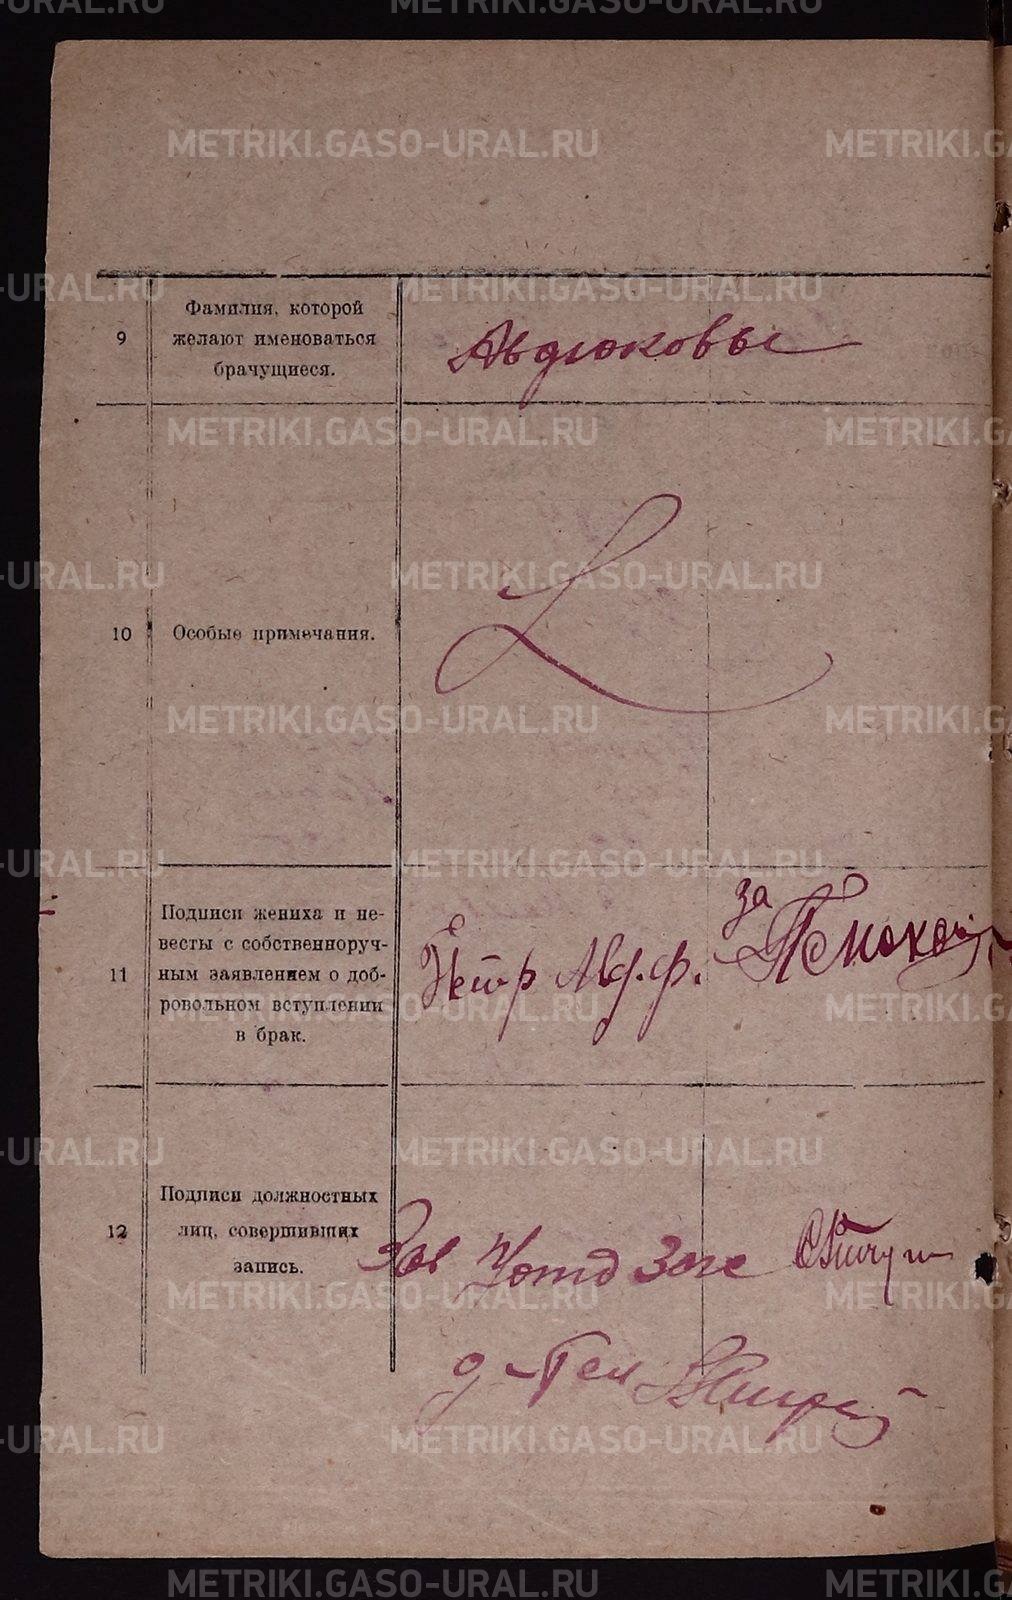 9
Фамилия, которой
желают именоваться
брачущиеся.
Авдюковы
10
Особые примечания.
11
Подписи жениха и не-
весты с собственноруч-
ным заявлением о доб-
ровольном вступлении
в брак.
Петр Авд.ф.
за
12
Подписи должностных
лиц, совершивших
запись.
Зав
METRIKI.GASO-URAL.RU